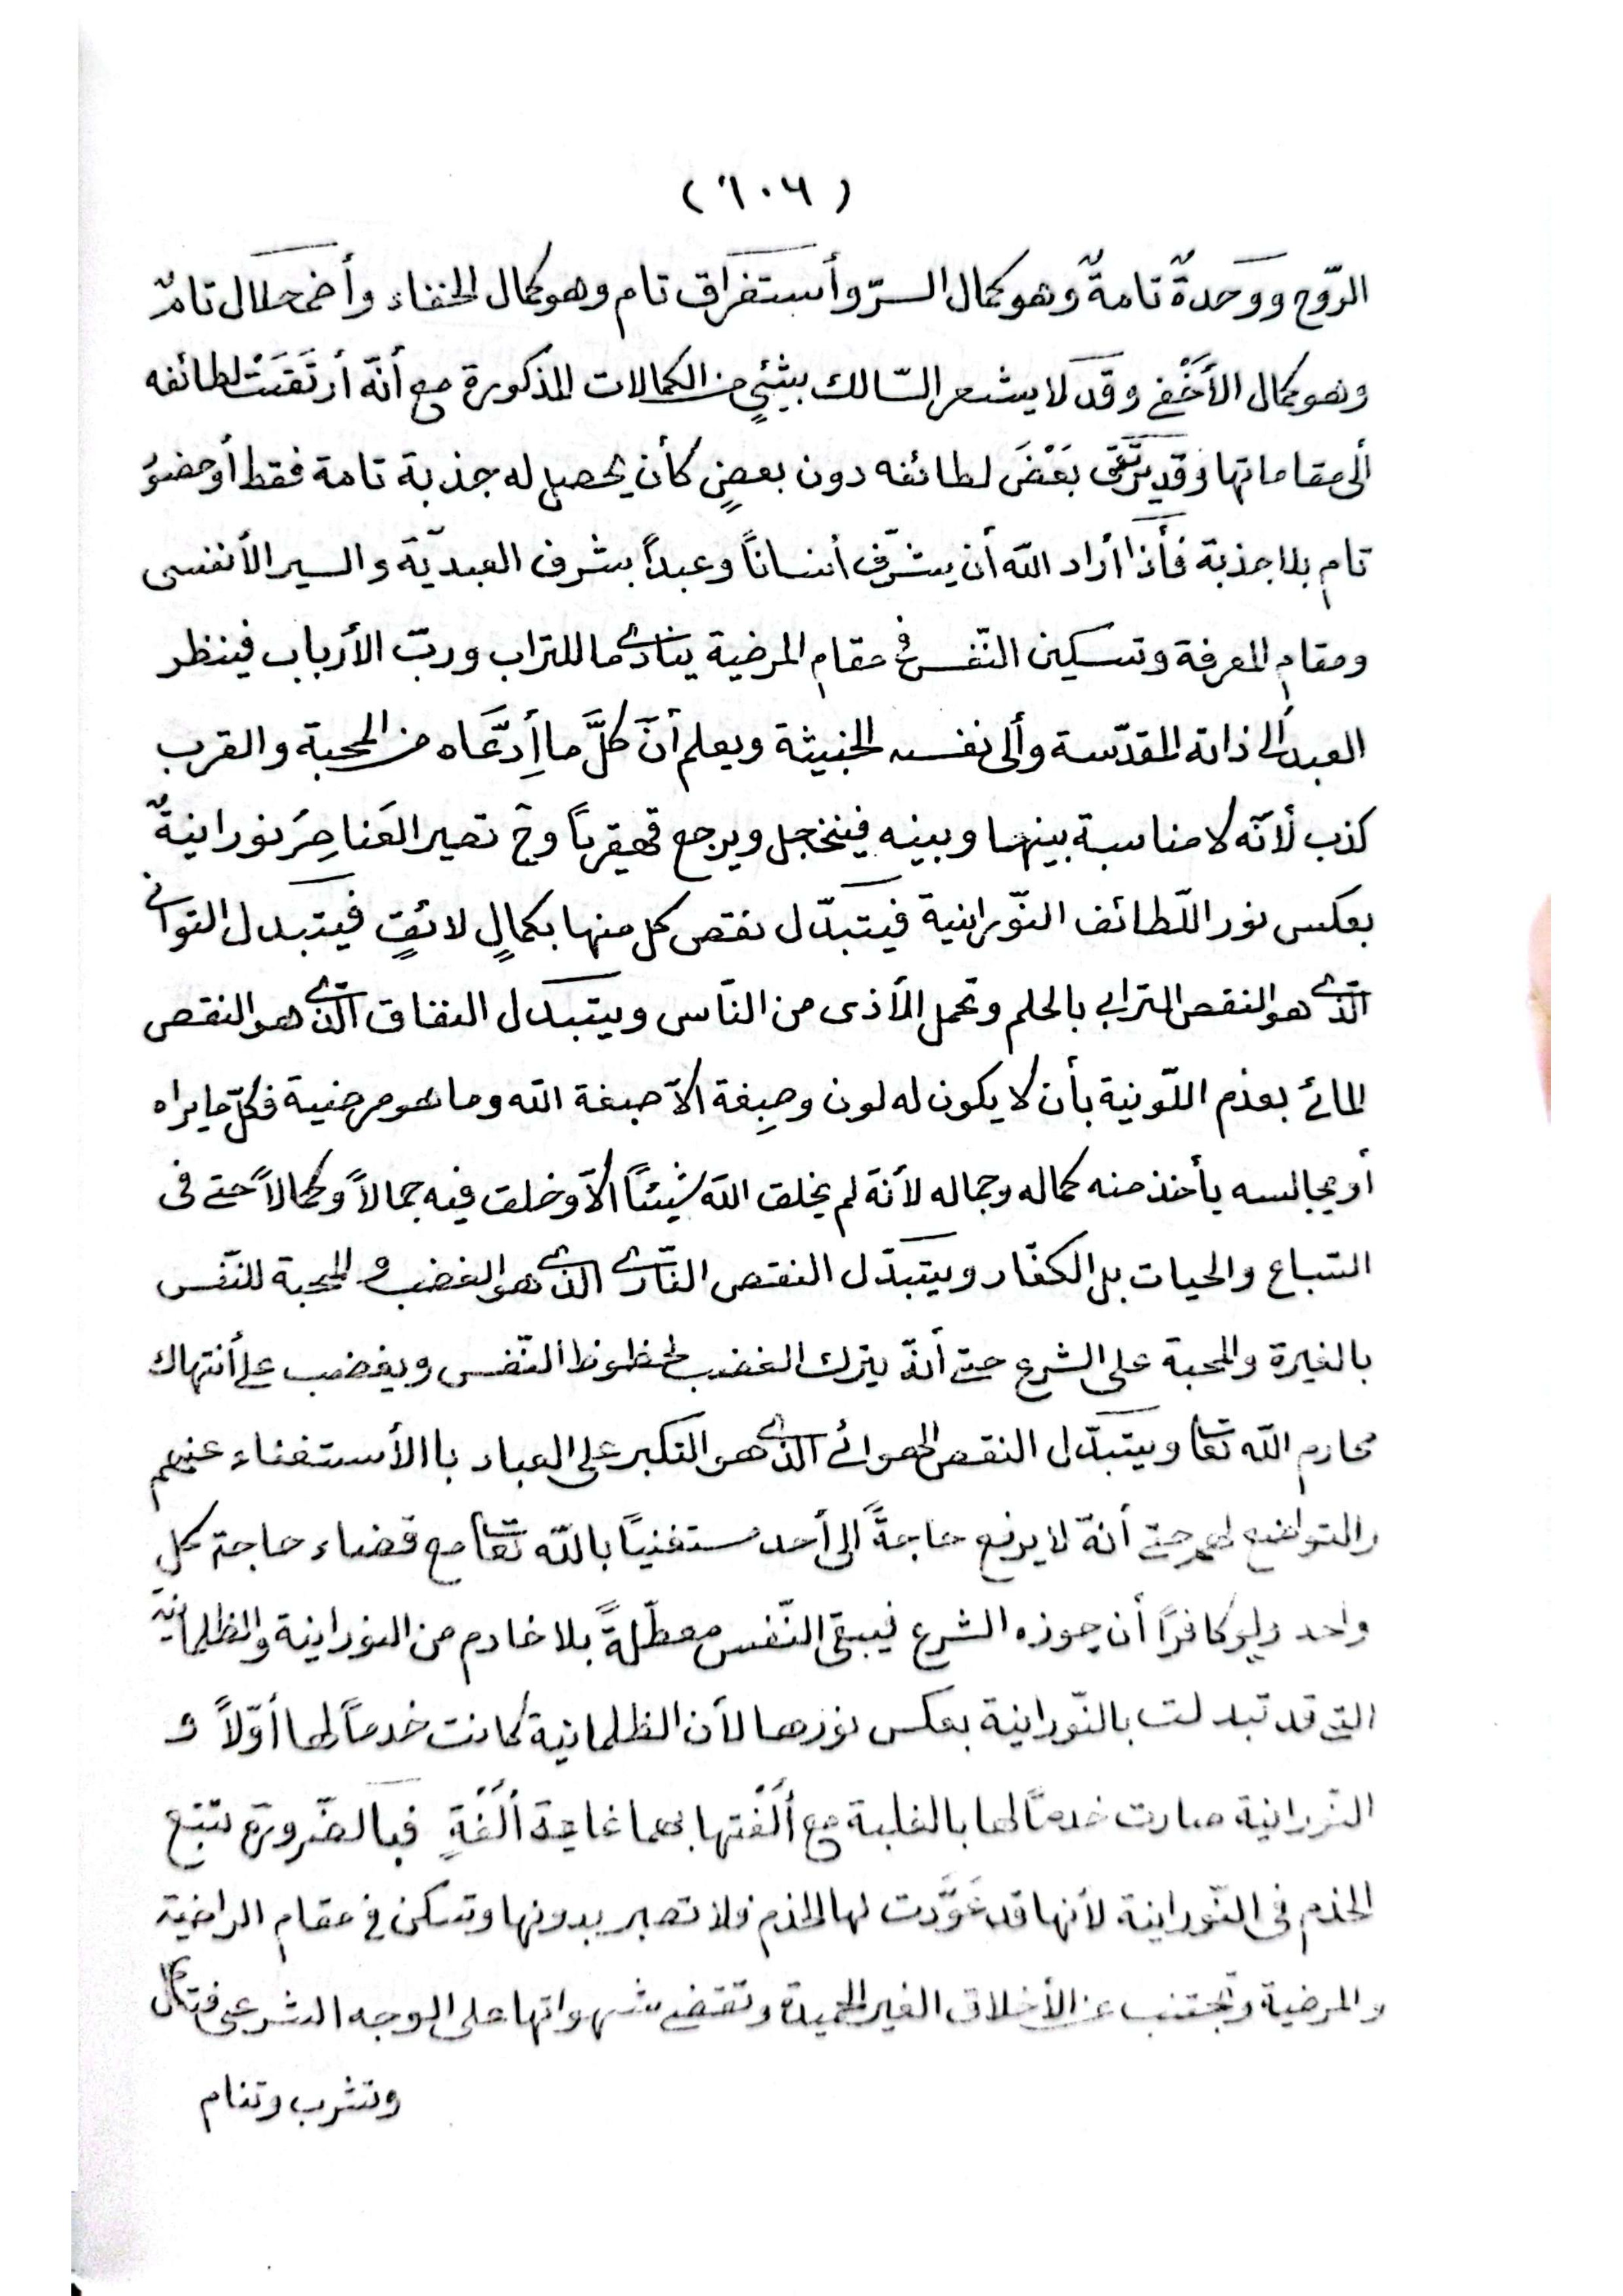 (٦٠٦)
الرّوح ووَحدةٌ تامةٌ وهو كمال السرّ وأستغراق تام وهو كمال الخفاء وأضمحلال تامٌ
وهو كمال الأَخْفى وقد لا يشعر السّالك بشئٍ من الكمالات المذكورة مع أنّه أرتَقَتْ لطائفه
ألى مقاماتها وقد يرتقى بَعْضَ لطائفه دون بعضٍ كأن يحصل له جذبة تامة فقط أو حضورُ
تام بلا جذبة فأَذا أراد اللّه أن يشرّف أنساناً وعبداً بشرف العبديّة والسير الأنفسى
ومقام المعرفة وتسكين النّفس فى مقام المرضية ينادى ما للتراب وربّ الأرباب فينظر
العبد ألى ذاته المقدّسة وألى نفسه الخبيثة ويعلم أنّ كلَّ ما أِدّعَاه من المحبة والقرب
كذب لأنّه لا مناسبة بينهما وبينه فينخجل ويرجع قهقرياً وح تصير العَناصِرُ نورانيةٌ
بعكس نور اللّطائف النّورانية فيتبدّل نقص كل منها بكمالٍ لائقٍ فيتبدل التوانى
الّذى هو النقص الترابى بالحلم وتحمل الأذى من النّاس ويتبدل النفاق الّذى هو النقص
المائى بعدم اللّونية بأن لا يكون له لون وصِبغة الاّ صبغة اللّه وما هو مرضية فكلّ ما يراه
أو يجالسه يأخذ منه كماله وجماله لأنّه لم يخلق اللّه شيئاً الاّ وخلق فيه جمالاً وكمالاً حتى فى
السّباع والحيات بل الكفّار ويتبدّل النقص النّارى الذى هو الغضب و المحبة للنّفس
بالغيرة والمحبة على الشرع حتى أنّه يترك الغضب لحظوظ النّفس ويغضب على أنتهاك
محارم اللّه تعا ويتبدّل النقص الهوائى الذى هو التكبر على العباد باالأستغناء عنهم
والتواضع لهم حتى أنّه لا يرفع حاجةً الى أحد مستغنياً باللّه تعا مع قضاء حاجة كل
واحد ولو كافراً أن جوزه الشرع فيبقى النّفس معطّلةً بلا خادم من النورانية والظلمانية
التى قد تبدلت بالنّورانية بعكس نورها لأن الظلمانية كانت خدماً لها أوّلاً و
النّورانية صارت خدماً لها بالغلبة مع أُلْفتها بهما غاية أُلْفةٍ فبالضّرورة تتبع
الخدم فى النّورانية لأنها قد عَوَّدت لها الخدم فلا تصبر بدونها وتسكن فى مقام الراضية
والمرضية وتجتنب عن الأخلاق الغير الحميدة وتقتضى شهواتها على الوجه الشرعى فتاكل
وتشرب وتنام